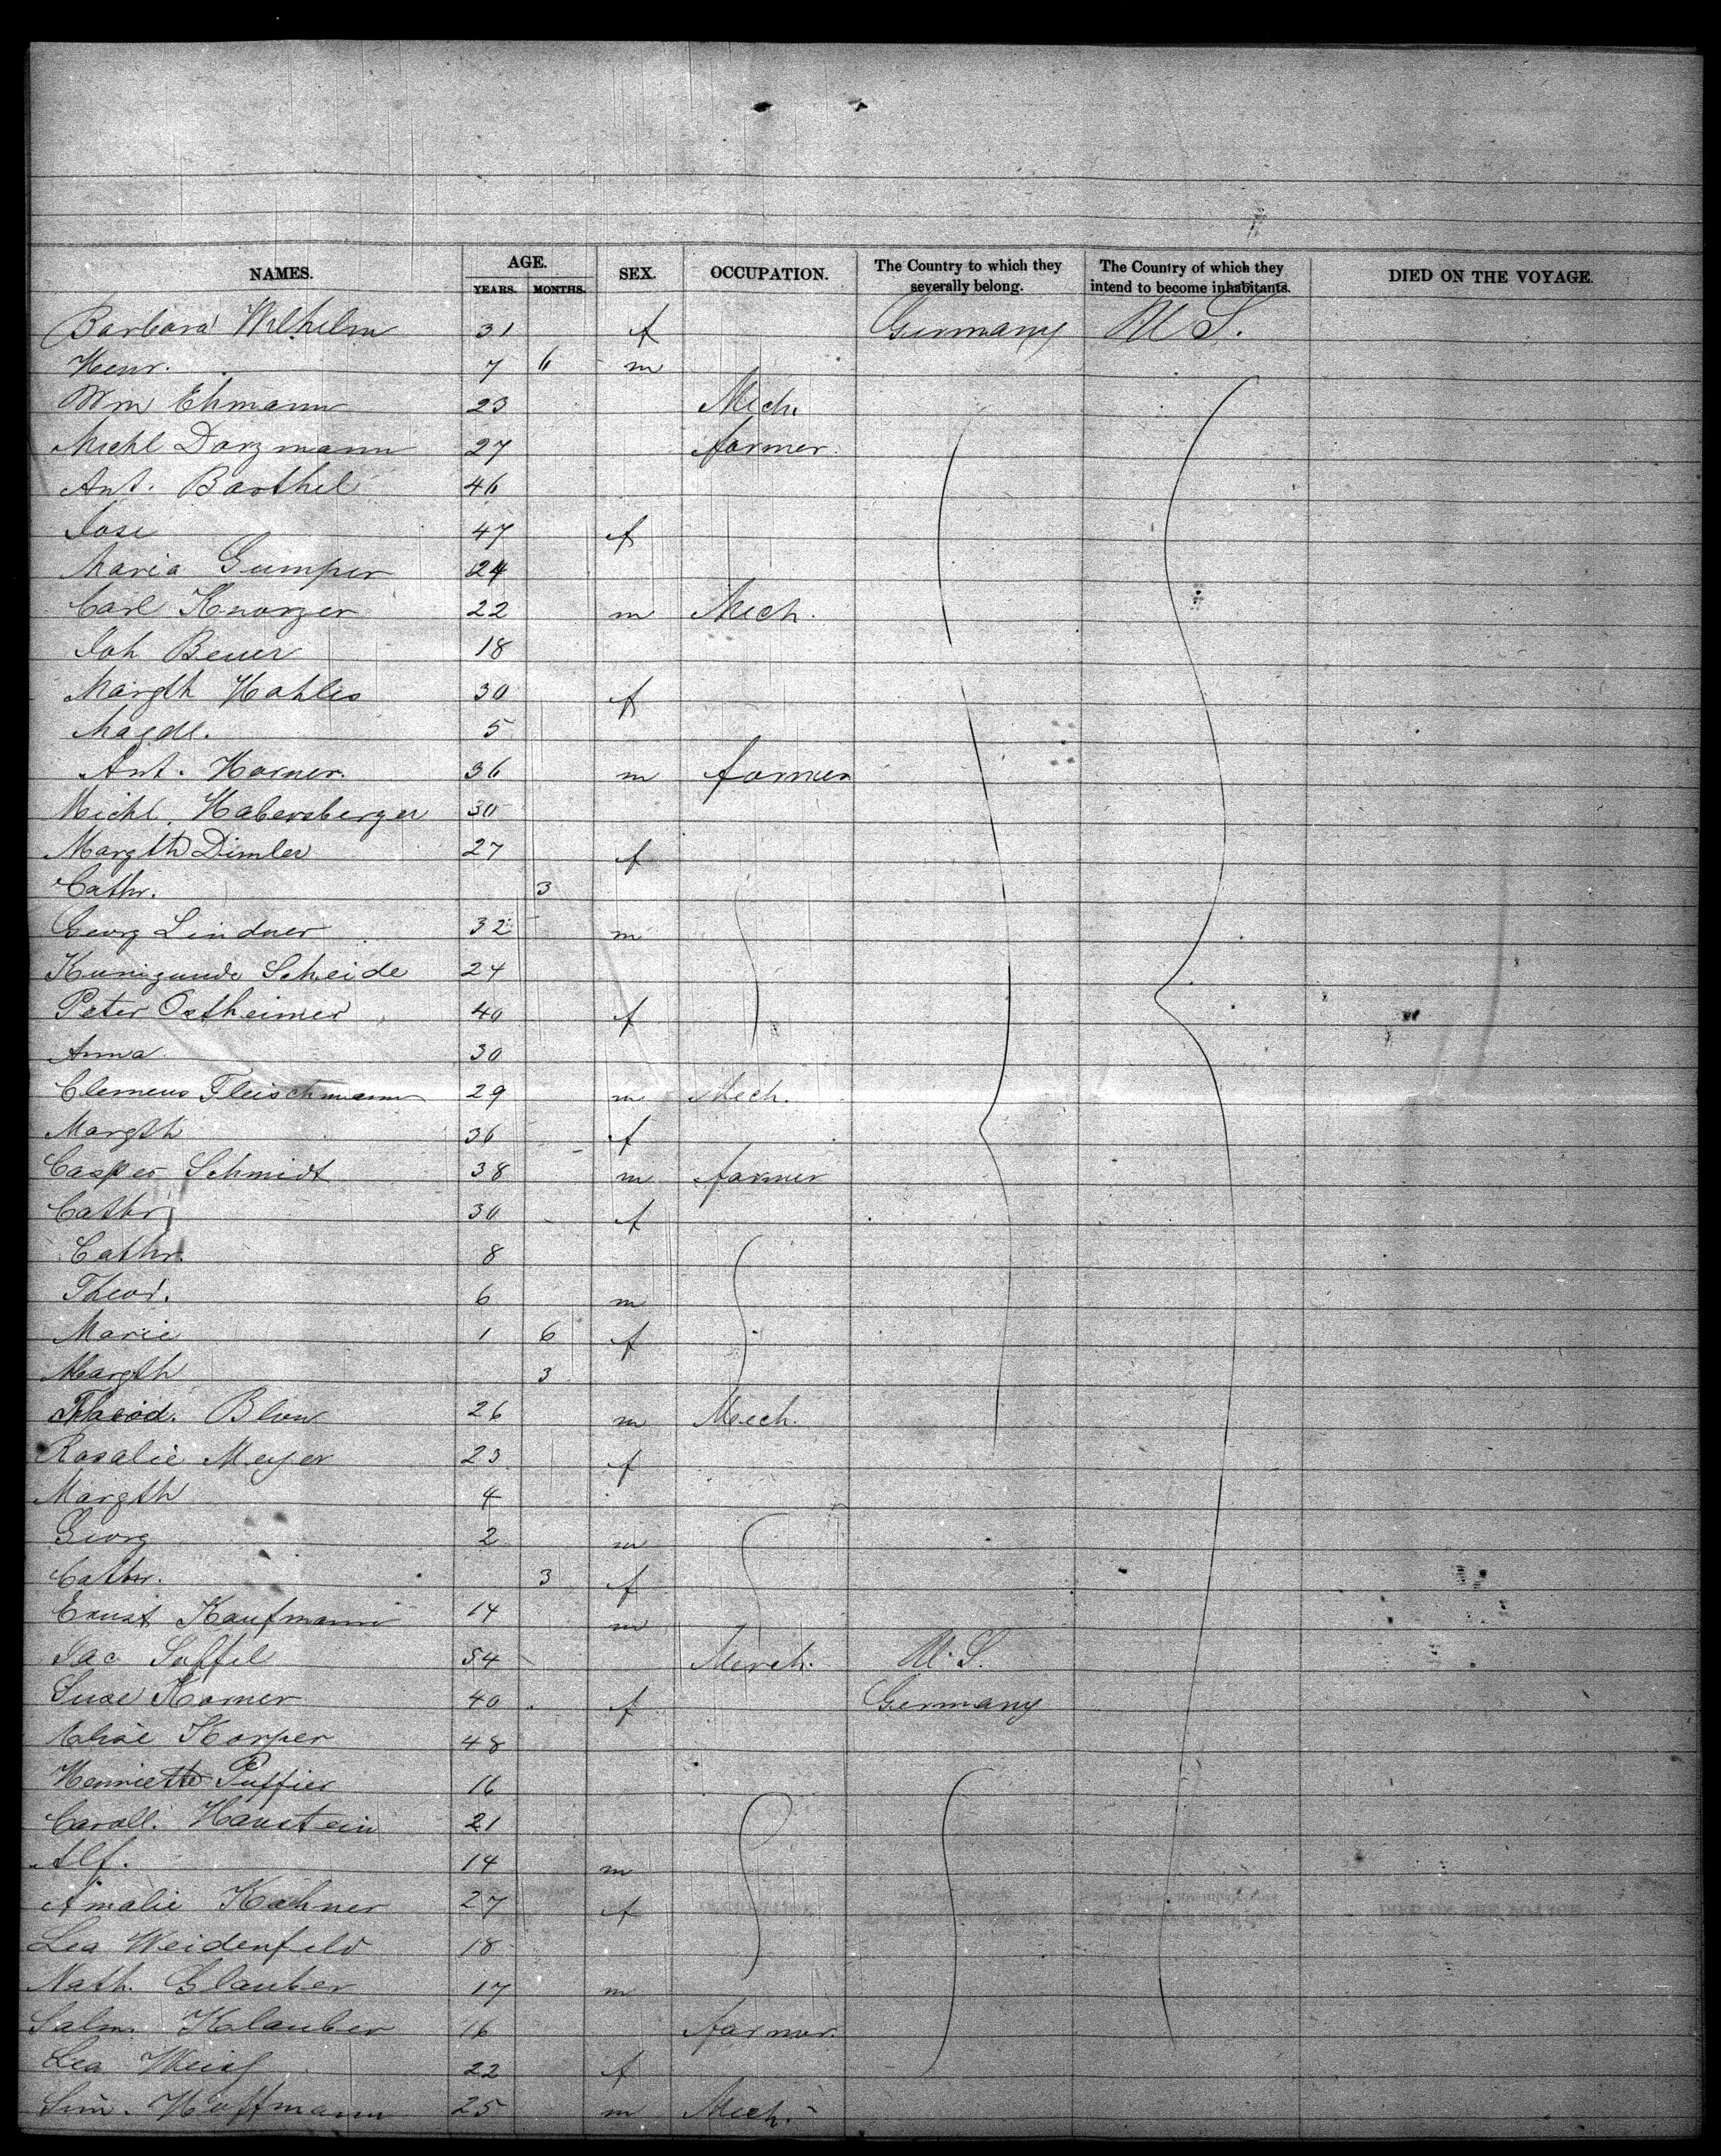 NAMES. AGE. SEX. OCCUPATION. The Country to which they severally belong. The Country of which they intend to become inhabitants. DIED ON THE VOYAGE.
YEARS. MONTHS.
Barbara Wilhelm 31 f Germany U S.
Henr. 7 6 m
Wm Ehmann 23 Mech.
Michl Dorzmann 27 farmer.
Ant. Barthel 46
Jose 47 f
Maria Gumper 24
Carl Knorzer 22 m Mech.
Joh Beuer 18
Margth Hahles 30 f
Magdl. 5
Ant. Horner. 36 m farmer
Michl. Habersberger 30
Margth Dimler 27 f
Cathr. 3
Georg Lindner 32 m
Kunigunde Scheide 24
Peter Ostheimer 40 f
Anna 30
Clemens Fleischmann 29 m Mech.
Margth 36 f
Casper Schmidt 38 m farmer
Cathr 30 f
Cathr. 8
Theod. 6 m
Marie 1 6 f
Margth 3
Theod. Blau 26 m Mech.
Rosalie Meyer 23 f
Margth 4
Georg 2 m
Cathr. 3 f
Ernst Kaufmann 14 m
Jac Soffel 54 Merch. U. S.
Suse Korner 40 f Germany
Elise Korper 48
Henriette Puffier 16
Caroll. Haustein 21
Alf. 14 m
Amalie Kohner 27 f
Lea Weidenfeld 18
Nath. Glauber 17 m
Salm. Klauber 16 farmer.
Lea Weiss 22 f
Sim. Hoffmann 25 m Mech.